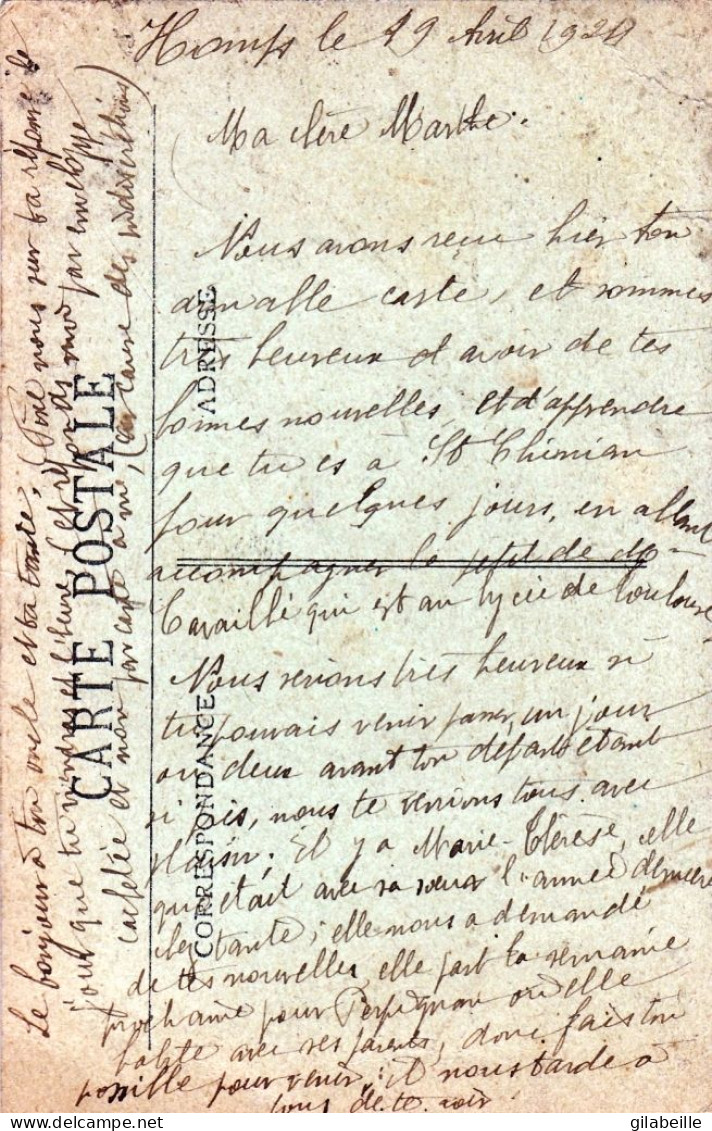 Homps le 19 Avril 1920
Ma chère Marthe.
Nous avons reçu hier ton
aimable carte, et sommes
très heureux d'avoir de tes
bonnes nouvelles, et d'apprendre
que tu es à St Chinian
pour quelques jours, en allant
accompagner le petit de Mr
Cavaillé qui est au lycée de Toulouse
Nous serions très heureux si
tu pouvais venir passer, un jour
ou deux avant ton départ étant
si près, nous te verrions tous avec
plaisir. Il y a Marie-Thérèse, elle
qui était avec sa sœur l'année dernière
chez tante; elle nous a demandé
de tes nouvelles, elle part la semaine
prochaine pour Perpignan où elle
habite avec ses parents, donc fais ton
possible pour venir; il nous tarde à
tous de te voir.
Le bonjour à ton oncle et ta tante, (Fixe nous sur ta réponse le
jour que tu viendras et l'heure et réponds moi par enveloppe
cachetée et non par carte à moi, (à cause des indiscrétions)
CARTE POSTALE
CORRESPONDANCE
ADRESSE
gilabeille